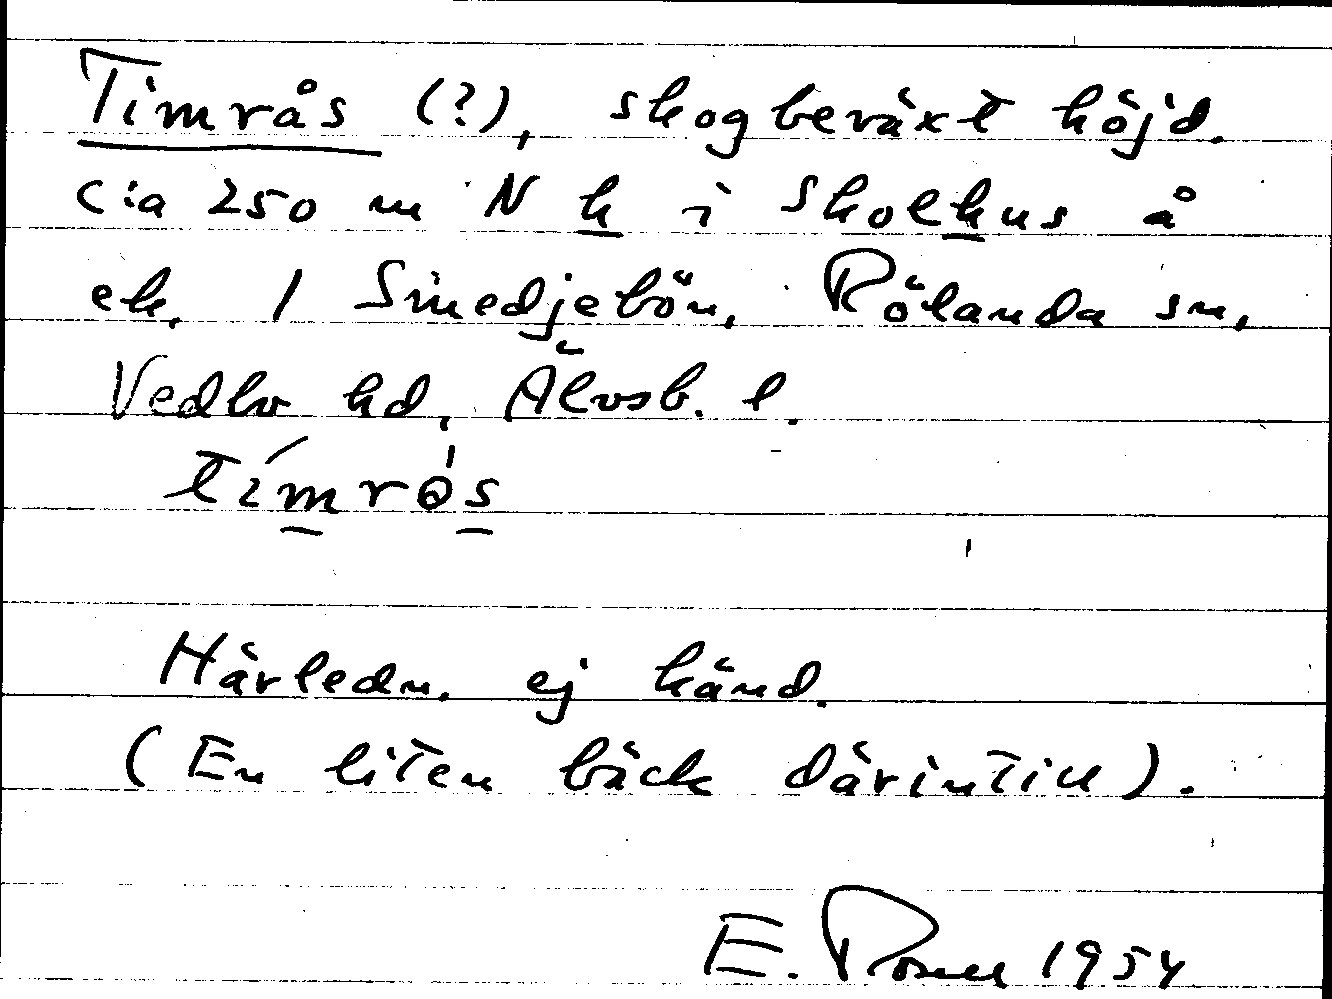 Timrås (?), skogbeväxt höjd.
c:a 250 m N k i Skolkus å
ek. 1 Smedjebön, Rölanda sn,
Vedbo hd, Älvsb. l.
tímrós
Härledn. ej känd.
(En liten bäck därintill).
E. 1954